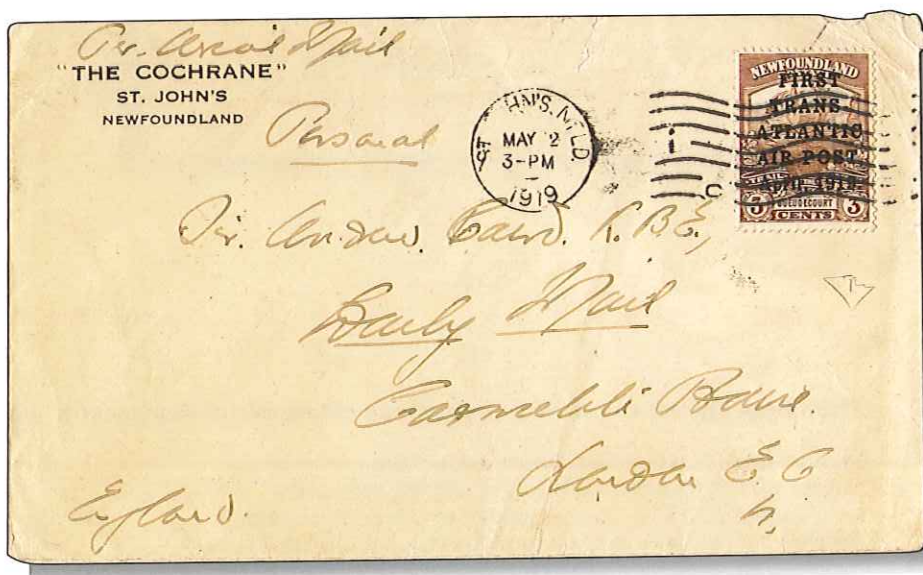 Per. Aerial Mail
"THE COCHRANE"
ST. JOHN'S
NEWFOUNDLAND
Personal
ST JOHN'S, NFLD.
MAY 2
3-PM
1919
NEWFOUNDLAND
FIRST
TRANS-
ATLANTIC
AIR POST,
April, 1919.
TRAIL
GUEUDECOURT
3 CENTS 3
Sir. Andrew. Caird. K.B.E,
Daily Mail
Carmelite House.
London E C
England.